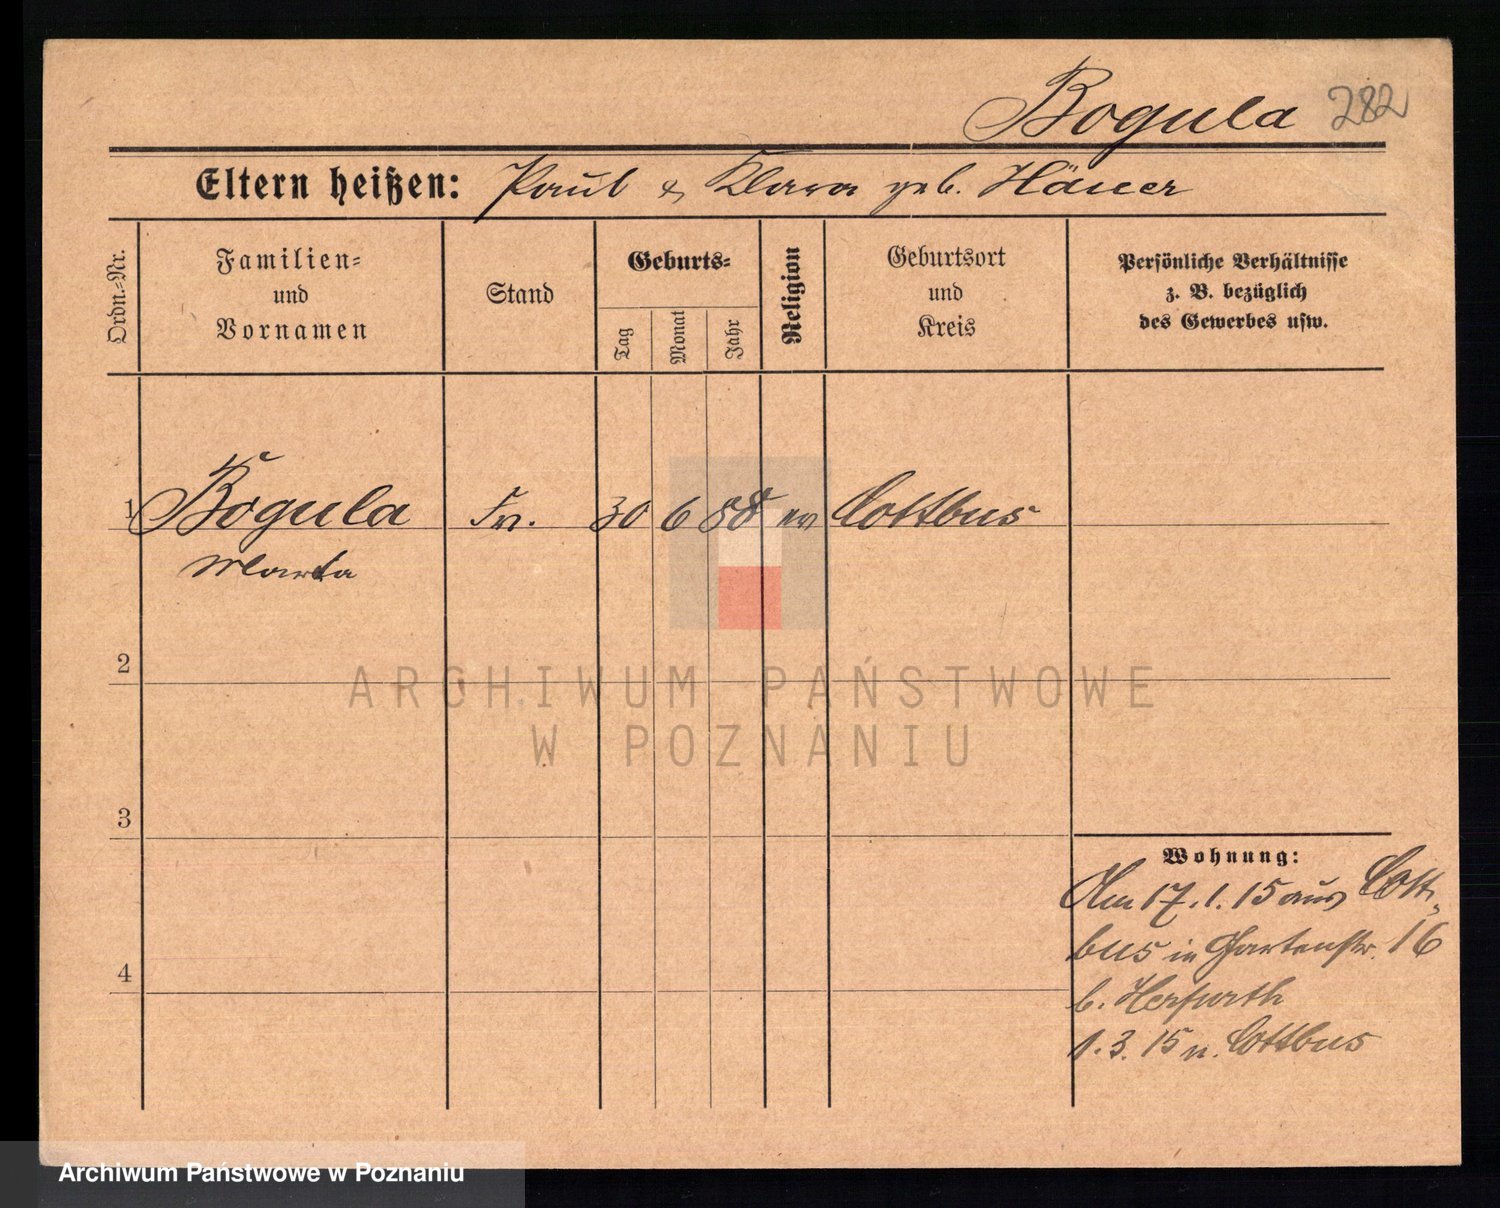 Bogula 282
Eltern heißen: Paul & Klara geb. Häuer
Ordn.-Nr.
Familien-
und
Vornamen
Stand
Geburts-
Tag
Monat
Jahr
Religion
Geburtsort
und
Kreis
Persönliche Verhältnisse
z. B. bezüglich
des Gewerbes usw.
1 Bogula Frl. 30 6 88 ev Cottbus
Marta
2
ARCHIWUM PAŃSTWOWE
W POZNANIU
3
Wohnung:
Am 17.1.15 aus Cott-
bus in Gartenstr. 16
4
b. Herfurth
1.3.15 n. Cottbus
Archiwum Państwowe w Poznaniu